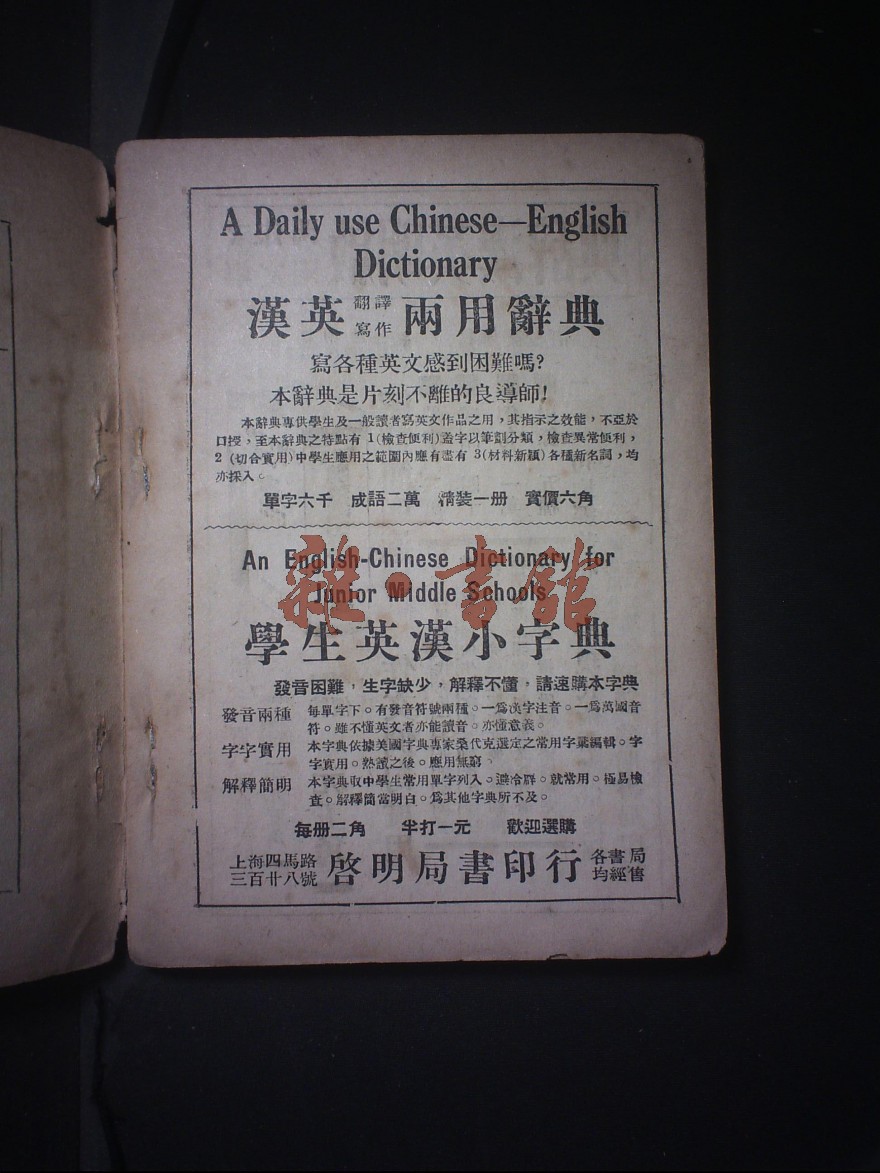 A Daily use Chinese—English
Dictionary
漢英翻譯寫作兩用辭典
寫各種英文感到困難嗎?
本辭典是片刻不離的良導師!
本辭典專供學生及一般讀者寫英文作品之用,其指示之效能,不亞於
口授,至本辭典之特點有1(檢查便利)蓋字以筆劃分類,檢查異常便利,
2(切合實用)中學生應用之範圍內應有盡有3(材料新穎)各種新名詞,均
亦採入。
單字六千 成語二萬 精裝一册 實價六角
An English-Chinese Dictionary for
Junior Middle Schools
雜·書館
學生英漢小字典
發音困難,生字缺少,解釋不懂,請速購本字典
發音兩種 每單字下。有發音符號兩種。一爲漢字注音。一爲萬國音
符。雖不懂英文者亦能讀音。亦懂意義。
字字實用 本字典依據美國字典專家桑代克選定之常用字彙編輯。字
字實用。熟讀之後。應用無窮。
解釋簡明 本字典取中學生常用單字列入。避冷僻。就常用。極易檢
查。解釋簡當明白。爲其他字典所不及。
每册二角 半打一元 歡迎選購
上海四馬路三百廿八號 啓明局書印行 各書局均經售